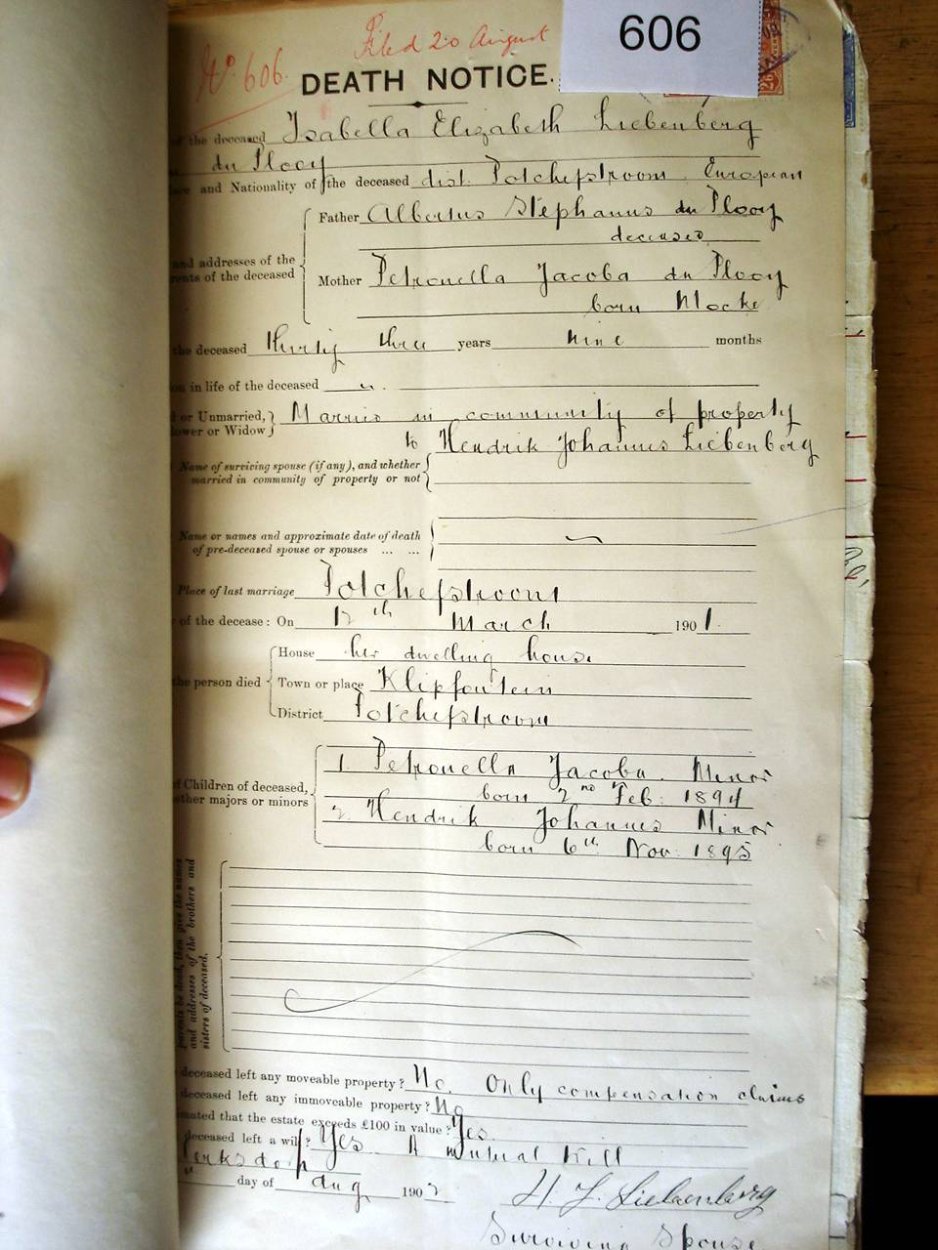 606
Filed 20 August
No 606.
DEATH NOTICE.
of the deceased Isabella Elizabeth Liebenberg
du Plooy
and Nationality of the deceased dist. Potchefstroom. European
Father Albertus Stephanus du Plooy
deceased
and addresses of the
of the deceased
Mother Petronella Jacoba du Plooy
born Mocke
the deceased thirty three years nine months
in life of the deceased
or Unmarried, Married in community of property
or Widow to Hendrik Johannes Liebenberg
Name of surviving spouse (if any), and whether
married in community of property or not
Name or names and approximate date of death
of pre-deceased spouse or spouses ... ...
Place of last marriage Potchefstroom
of the decease: On 12th March 1901.
House her dwelling house
the person died Town or place Klipfontein
District Potchefstroom
1 Petronella Jacoba. Minor
of Children of deceased,
born 2nd Feb. 1894
majors or minors
2. Hendrik Johannes Minor
born 6th Nov. 1895
be dead, then give the names
and addresses of the brothers and
sisters of deceased.
deceased left any moveable property? No. Only compensation claims
deceased left any immoveable property? No
that the estate exceeds £100 in value? Yes
deceased left a will? Yes. A mutual Will
day of Aug 1902
H. J. Liebenberg
Surviving Spouse